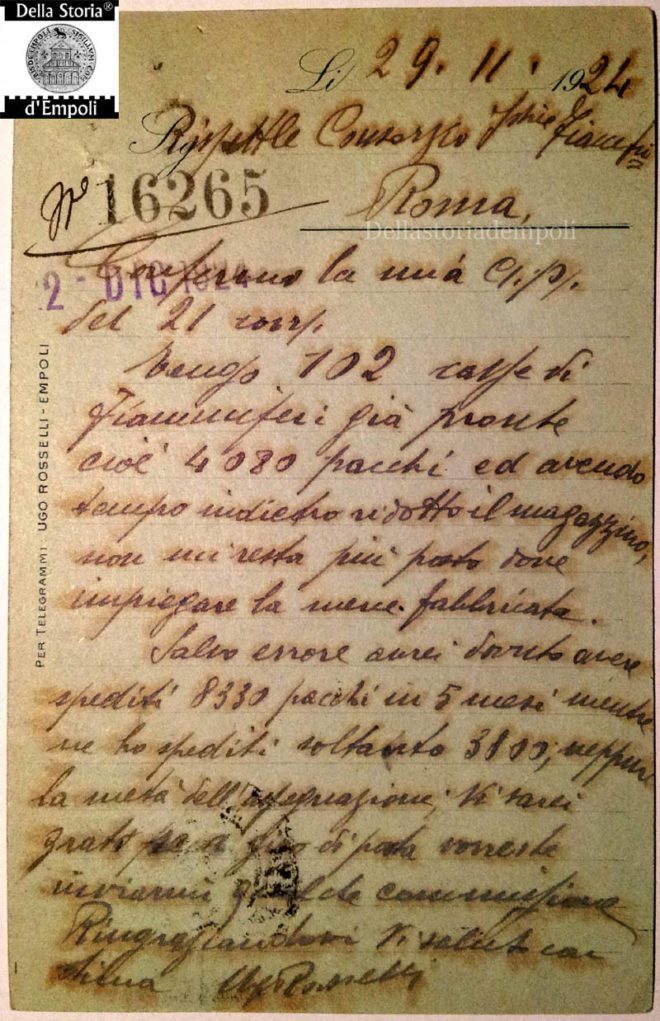 Della Storia®
d'Empoli
Li 29.11.1924
Rispettle Consorzio Industrie Fiammiferi
Roma,
No 16265
Dellastoriadempoli
2 - DIC 1924
Confermo la mia C/.p/.
del 21 corr/.
Tengo 102 casse di
fiammiferi già pronte
cioè 4080 pacchi ed avendo
tempo indietro ridotto il magazzino,
non mi resta più posto dove
impiegare la merce fabbricata.
Salvo errore avrei dovuto avere
spediti 8330 pacchi in 5 mesi mentre
ne ho spediti soltanto 3800, neppure
la metà dell'assegnazione, Vi sarei
grato se a giro di posta vorreste
inviarmi qualche commissione
Ringraziandovi Vi saluto con
stima Ugo Rosselli
PER TELEGRAMMI: UGO ROSSELLI - EMPOLI